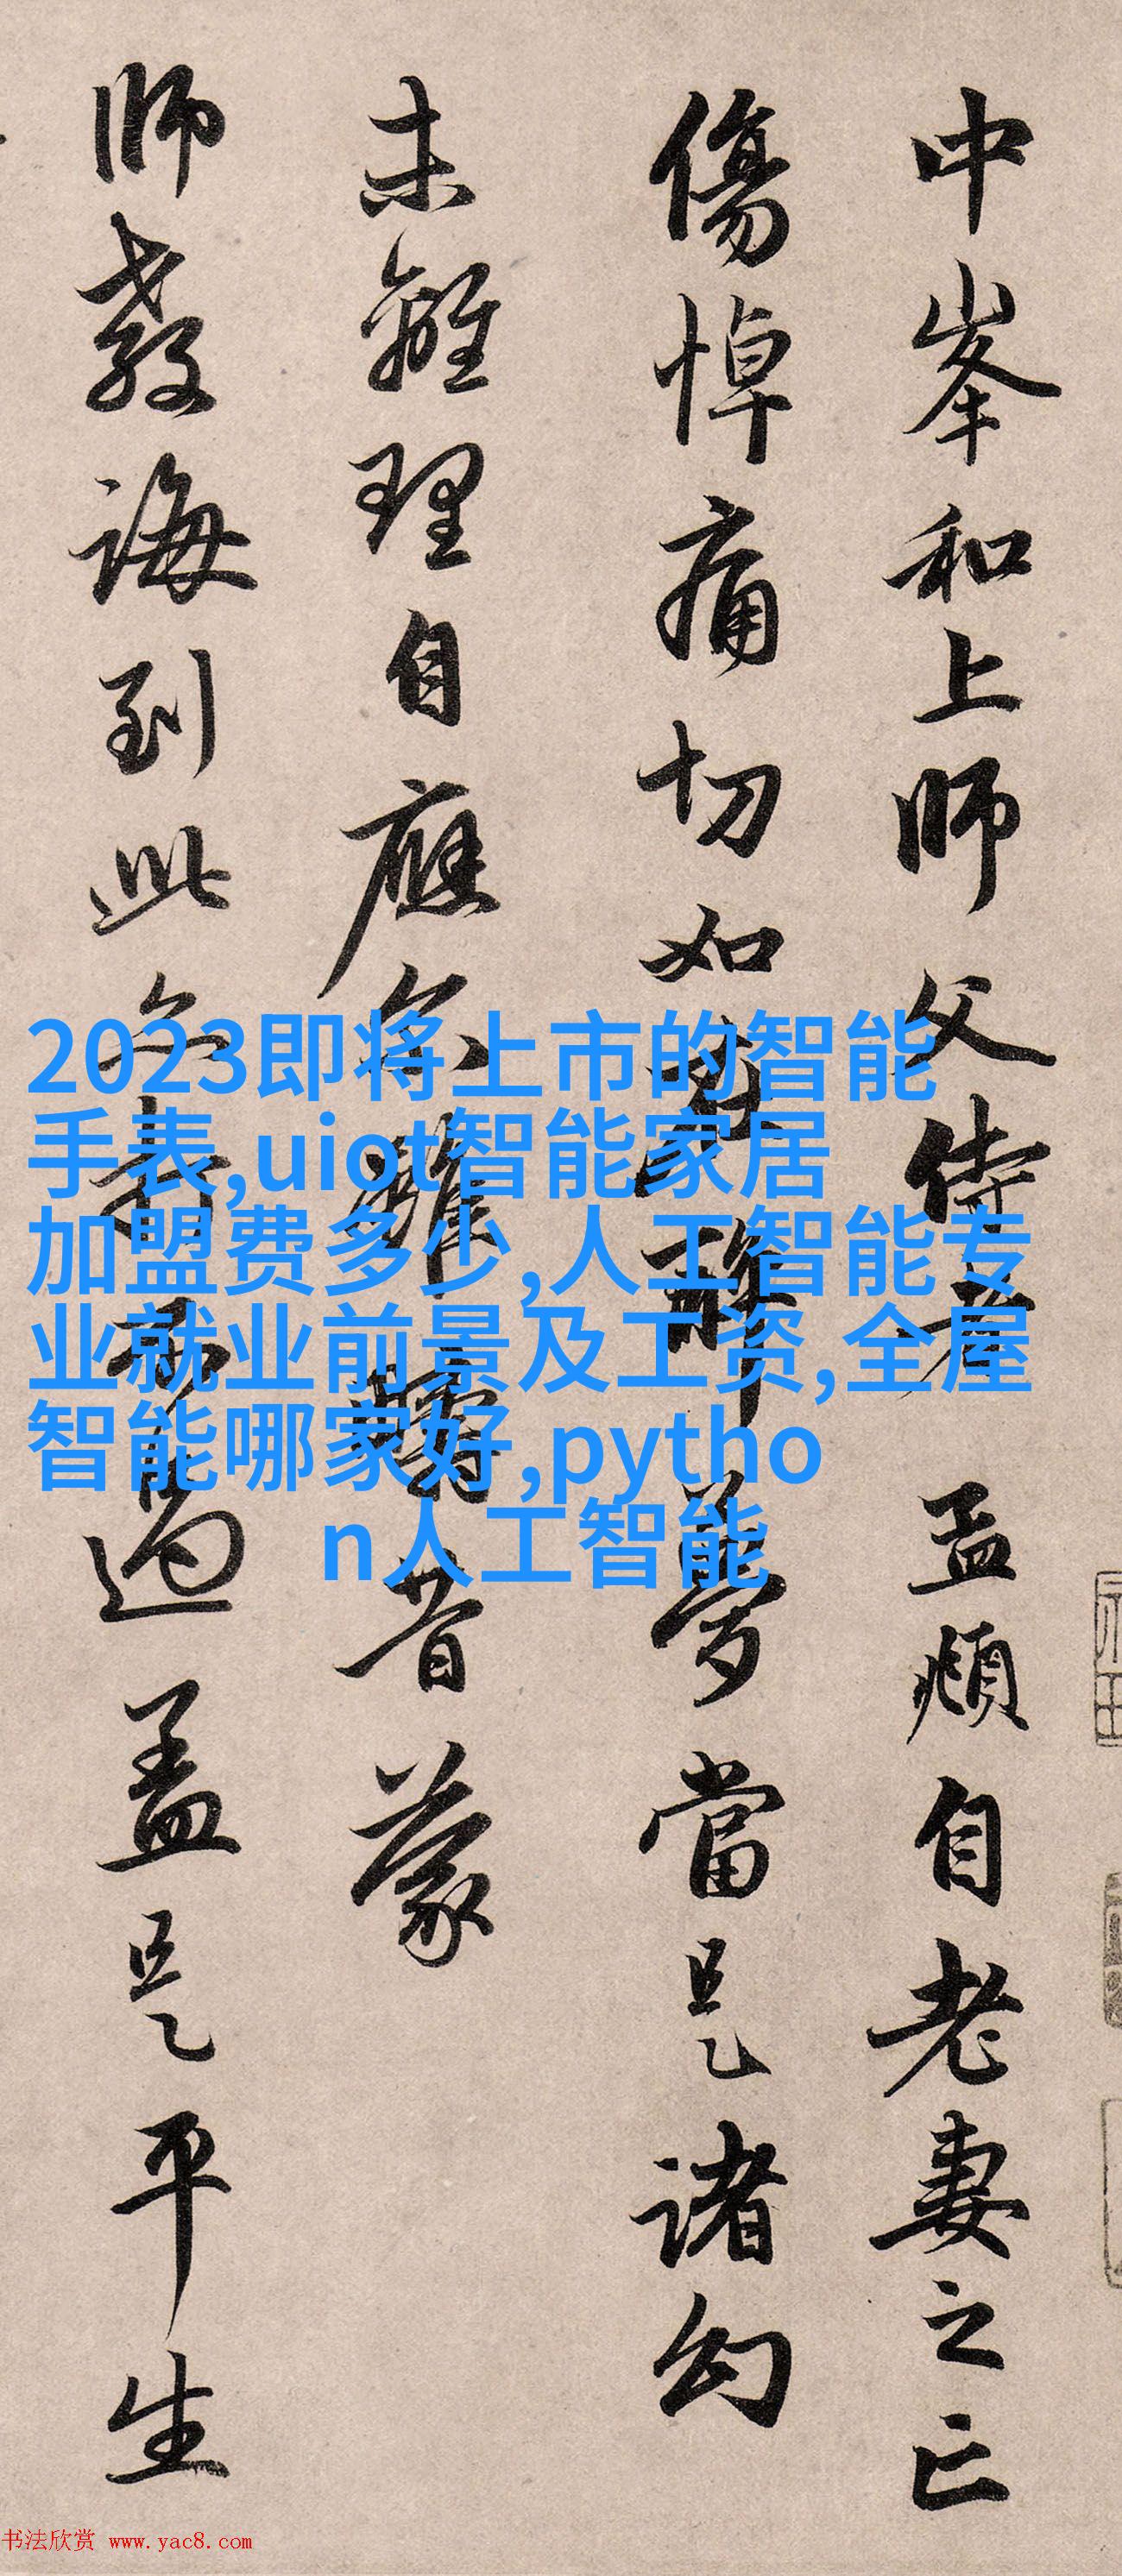 中峯和上師父侍者 孟頫自老妻之亡
傷悼痛切如在醉夢當是諸幻
未離理自應尒雖疇昔蒙
師教誨到此過蓋是平生
2023即将上市的智能
手表,uiot智能家居
加盟费多少,人工智能专
业就业前景及工资,全屋
智能哪家好,pytho
n人工智能
书法欣赏 www.yac8.com